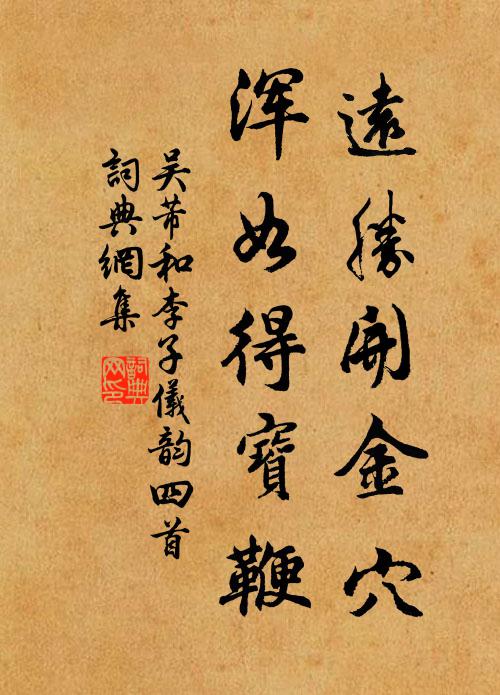 遠勝開金穴
渾如得寶鞭
吴芾和李子儀韵四首
詞典網集
詞典
网印